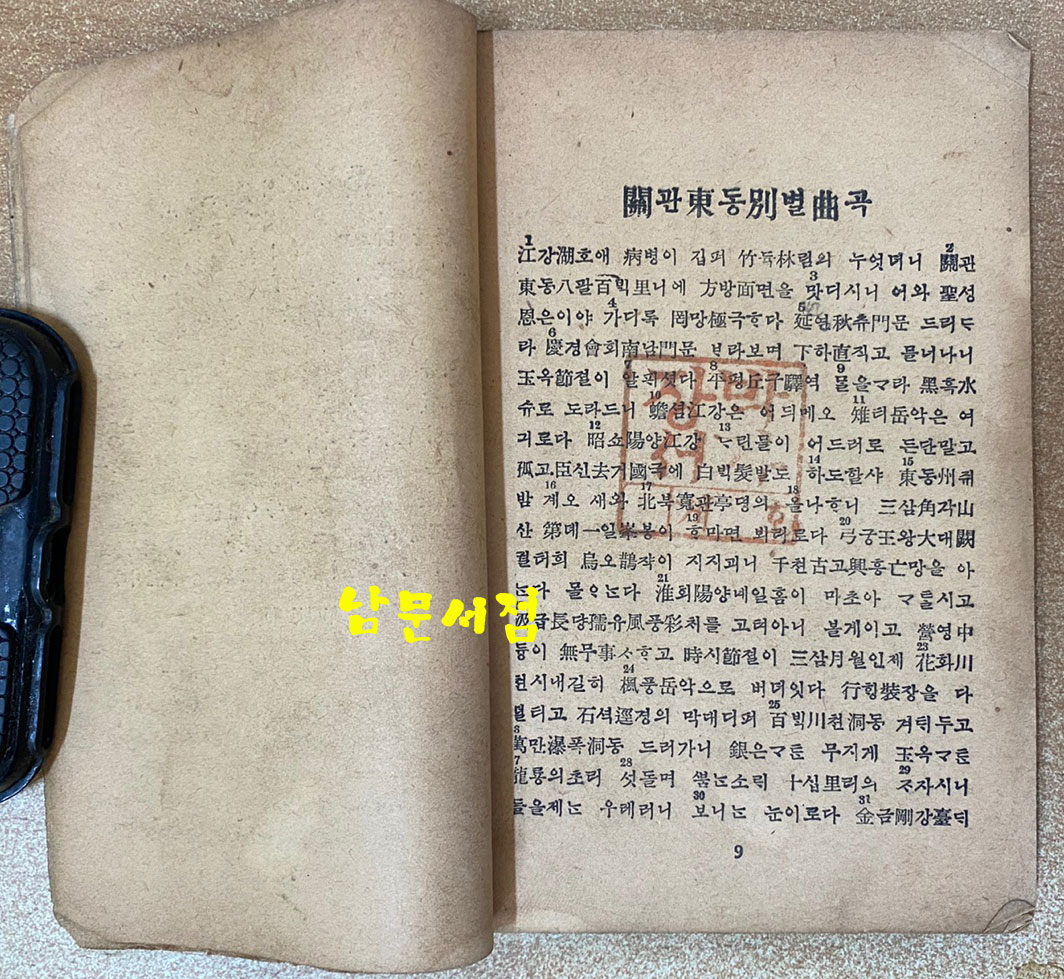 關관東동別별曲곡
1
2
江강湖호애 病병이 깁퍼 竹듁林림의 누엇더니 關관
3
東동八팔百빅里니에 方방面면을 맛디시니 어와 聖셩
4
5
恩은이야 가디록 罔망極극ᄒᆞ다 延연秋츄門문 드리ᄃᆞ
6
라 慶경會회南남門문 ᄇᆞ라보며 下하直직고 믈너나니
7 8 9
玉옥節졀이 알ᄑᆡ셧다 平평丘구驛역 ᄆᆞᆯ을ᄀᆞ라 黑흑水
10 11
슈로 도라드니 蟾셤江강은 어듸메오 雉티岳악은 여
12 13
긔로다 昭쇼陽양江강 ᄂᆞ린믈이 어드러로 든단말고
14 15
孤고臣신去거國국에 白ᄇᆡᆨ髮발도 하도할샤 東동州쥐
16 17 18
밤 계오 새와 北북寬관亭뎡의 올나ᄒᆞ니 三삼角각山
19 20
산 第뎨一일峯봉이 ᄒᆞ마면 뵈리로다 弓궁王왕大대闕
궐터희 烏오鵲쟉이 지지괴니 千쳔古고興흥亡망을 아
21
ᄂᆞᆫ다 몰ᄋᆞᄂᆞᆫ다 淮회陽양녜일홈이 마초아 ᄀᆞᄐᆞᆯ시고
汲급長댱孺유風풍彩ᄎᆡ를 고텨아니 볼게이고 營영中
23
듕이 無무事ᄉᆞᄒᆞ고 時시節졀이 三삼月월인제 花화川
24
쳔시내길히 楓풍岳악으로 버더잇다 行ᄒᆡᆼ裝장을 다
25
ᄯᅥᆯ티고 石셕逕경의 막대디퍼 百ᄇᆡᆨ川쳔洞동 겨ᄐᆡ두고
萬만瀑폭洞동 드러가니 銀은ᄀᆞᄐᆞᆫ 무지게 玉옥ᄀᆞᄐᆞᆫ
28 29
龍룡의초리 섯돌며 ᄲᅮᆷᄂᆞᆫ소ᄅᆡ 十십里리의 ᄌᆞ자시니
30 31
들을제ᄂᆞᆫ 우레러니 보니ᄂᆞᆫ 눈이로다 金금剛강臺ᄃᆡ
9
남문서점